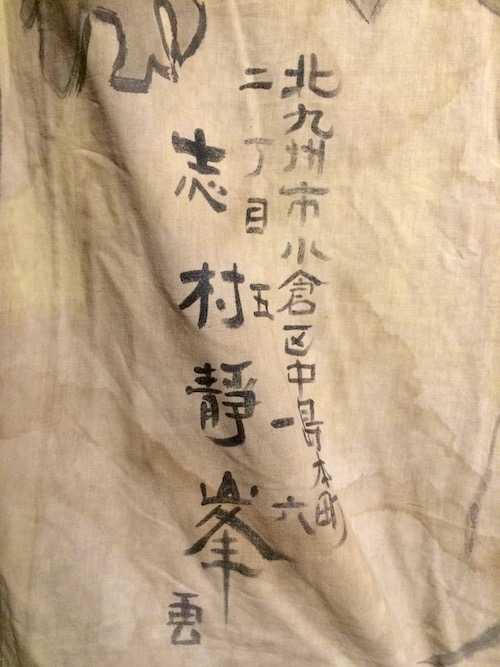 北九州市小倉区中島本町
二丁目五一六
志村靜峯雲